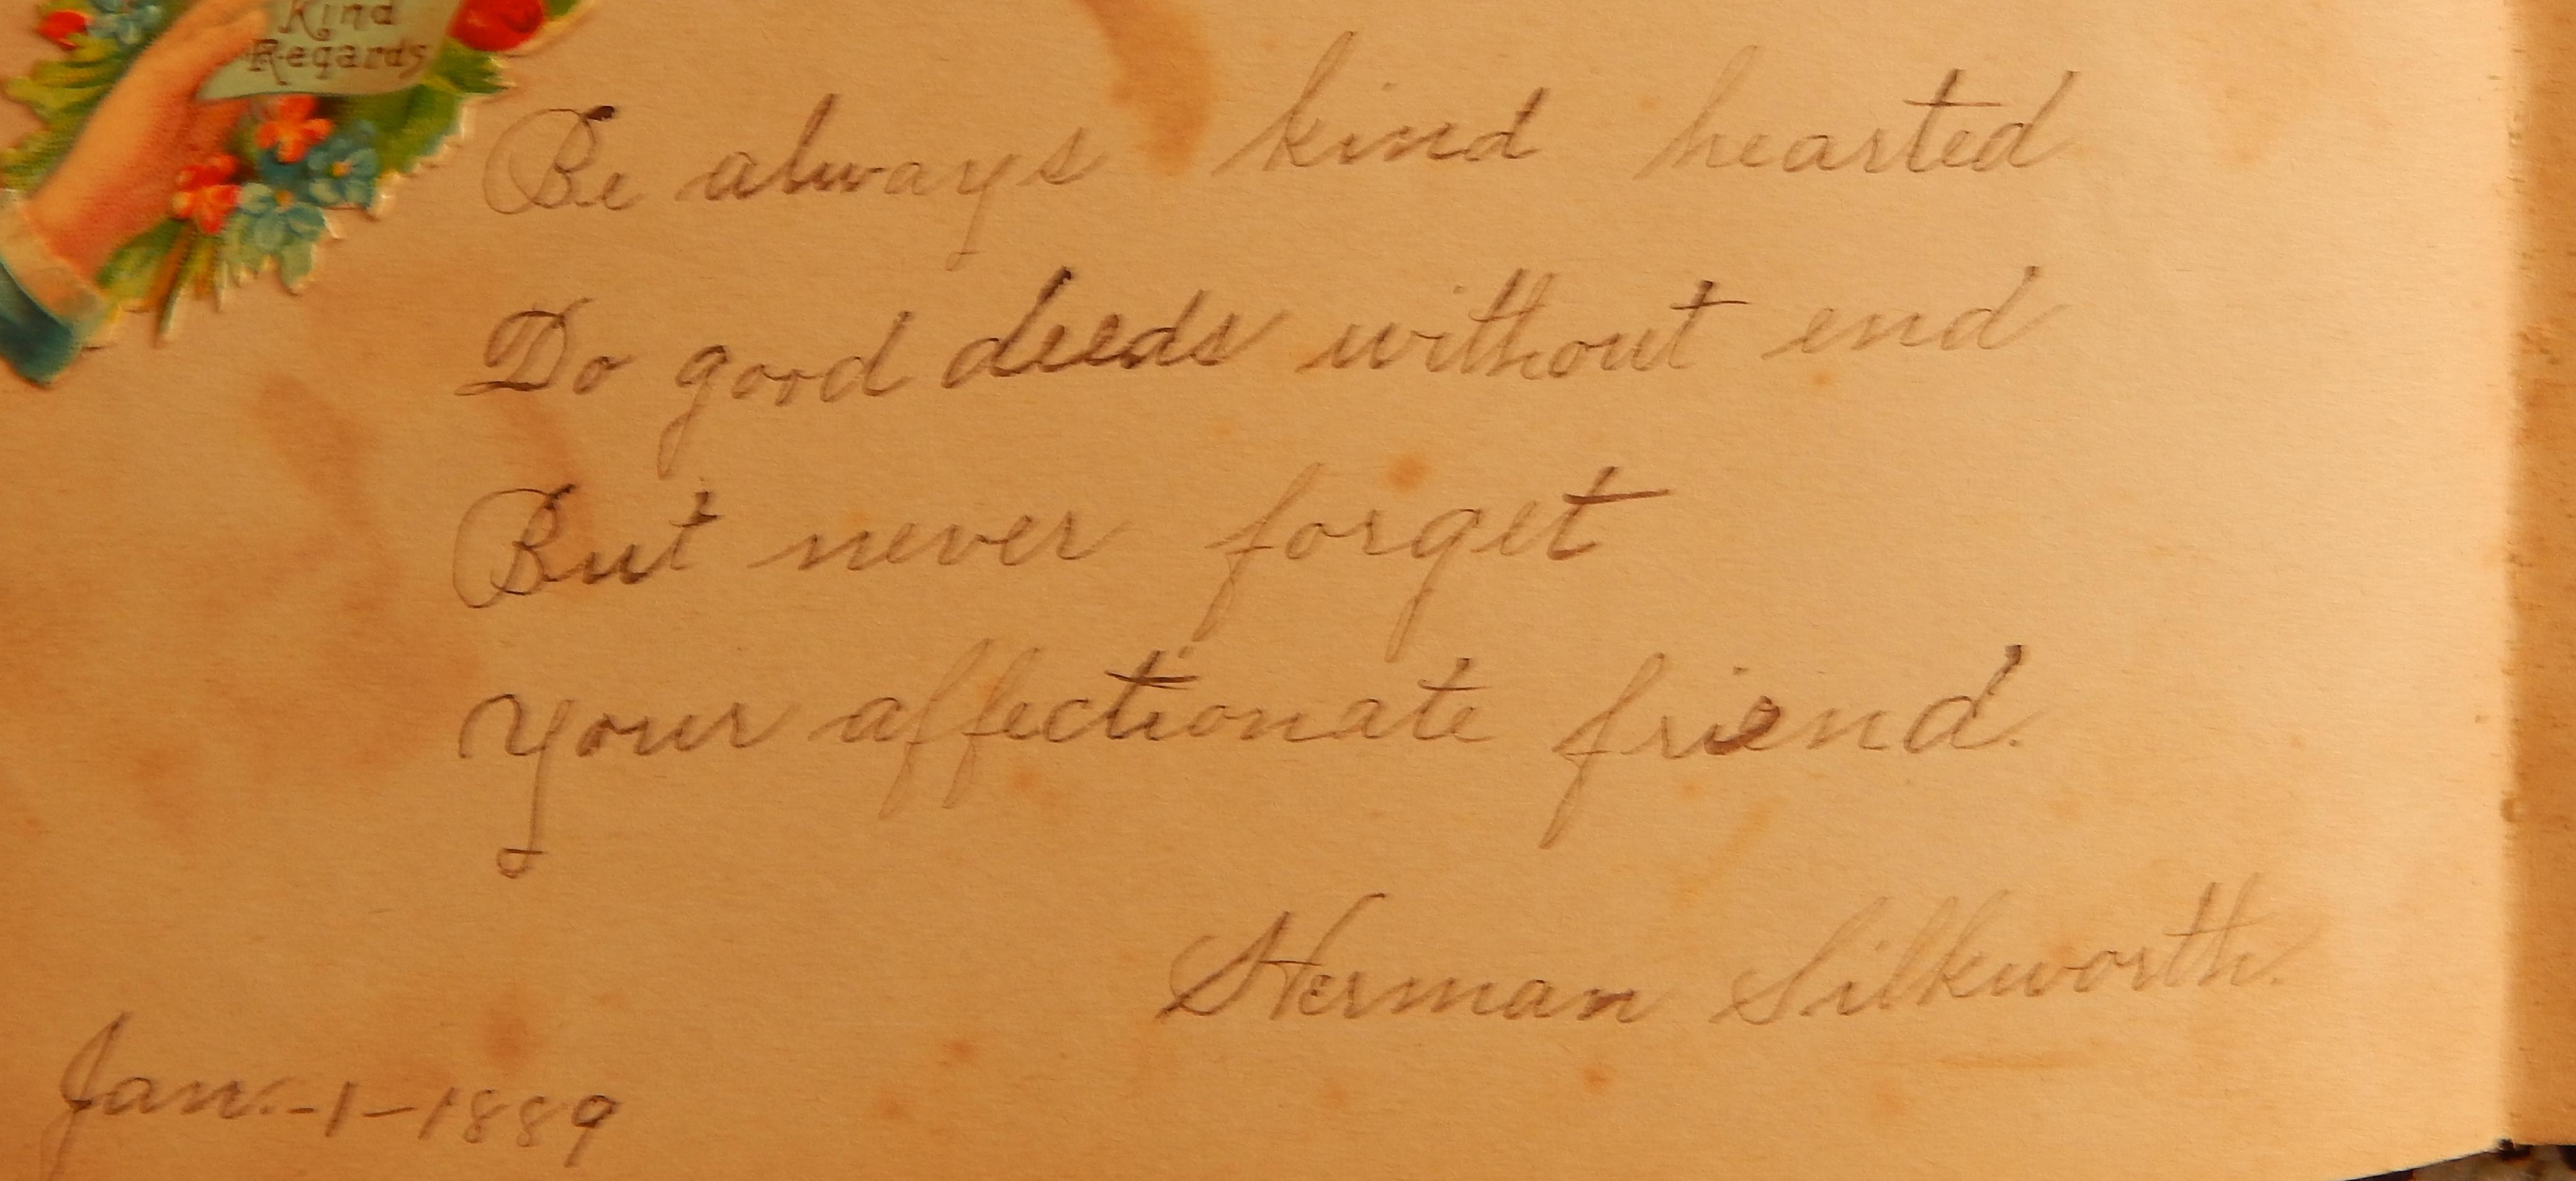 Kind
Regards
Be always kind hearted
Do good deeds without end
But never forget
Your affectionate friend.
Herman Silkworth.
Jan.-1-1889